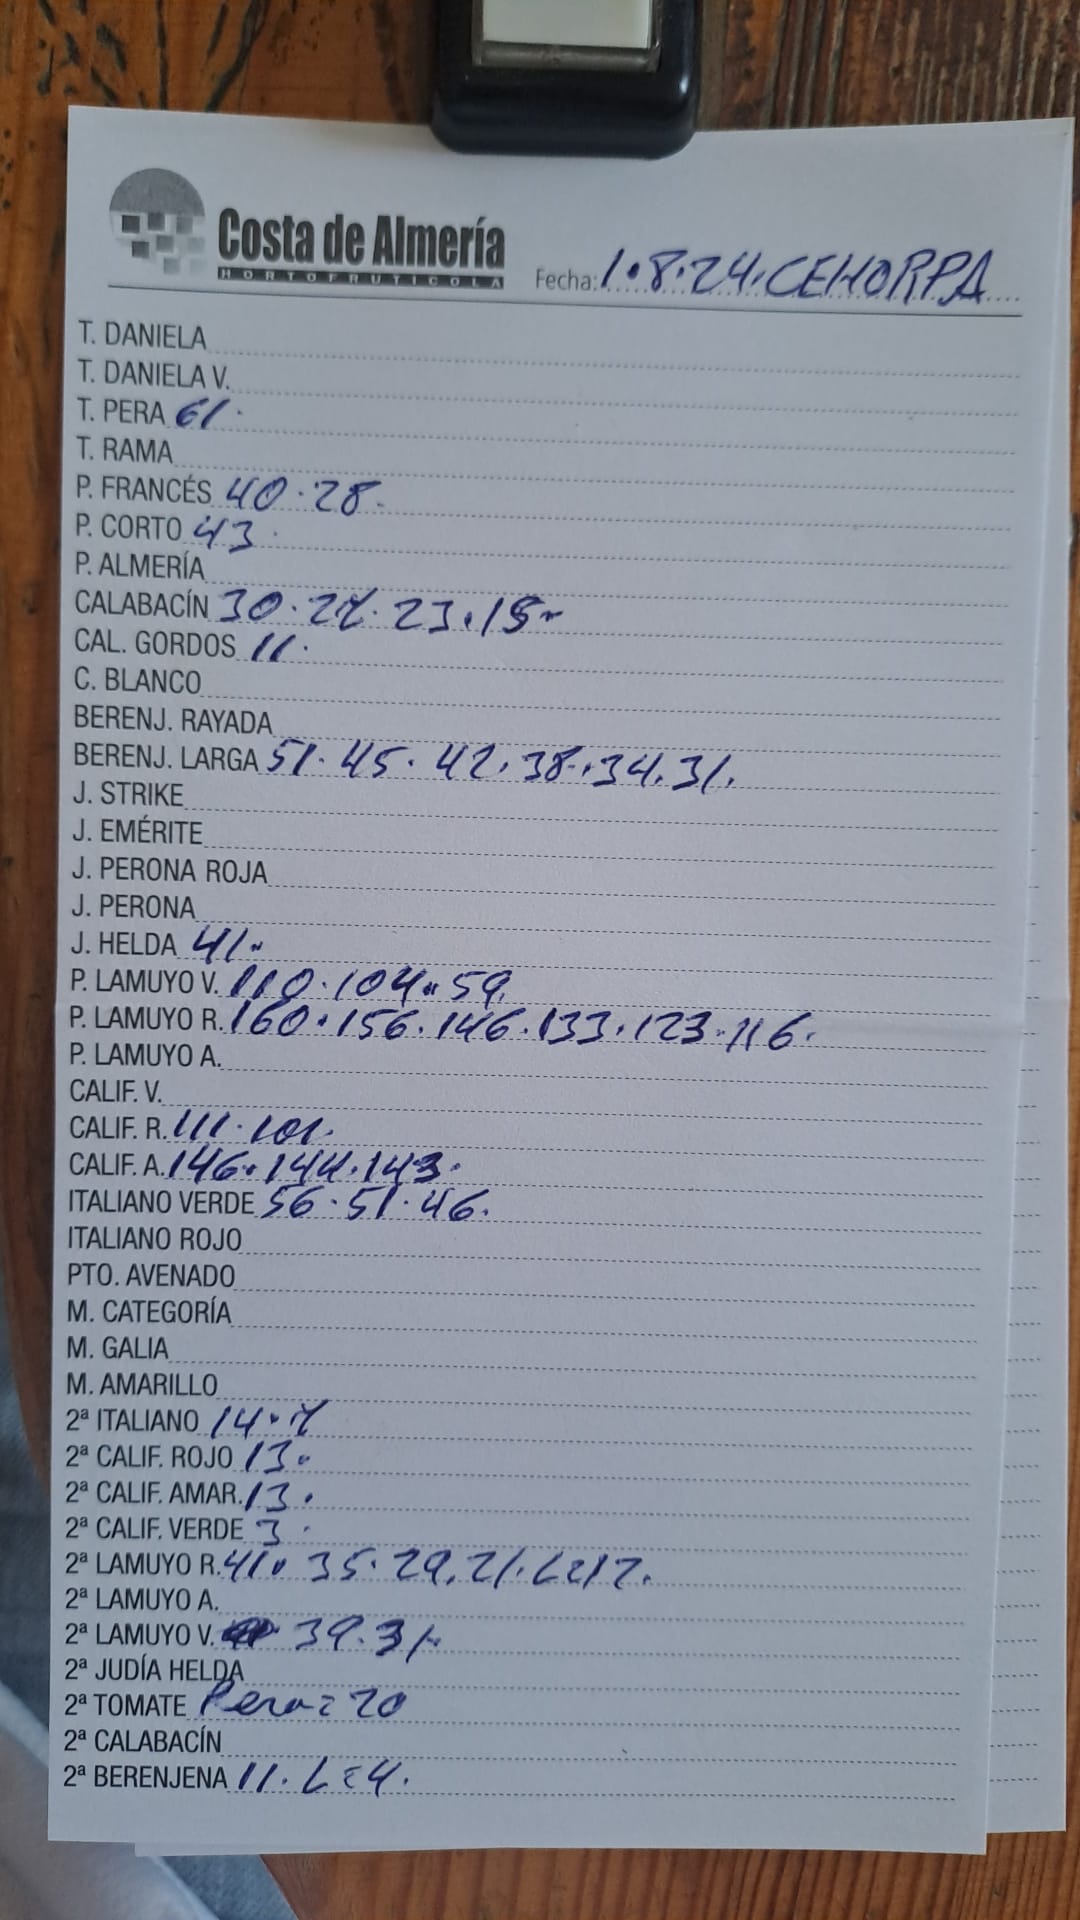 Costa de Almería
HORTOFRUTICOLA
Fecha: 1.8.24. CEHORPA
T. DANIELA
T. DANIELA V.
T. PERA 61.
T. RAMA
P. FRANCÉS 40.28.
P. CORTO 43.
P. ALMERÍA
CALABACÍN 30.27.23.18.
CAL. GORDOS 11.
C. BLANCO
BERENJ. RAYADA
BERENJ. LARGA 51.45.42.38.34.31.
J. STRIKE
J. EMÉRITE
J. PERONA ROJA
J. PERONA
J. HELDA 41.
P. LAMUYO V. 110.104.59.
P. LAMUYO R. 160.156.146.133.123.116.
P. LAMUYO A.
CALIF. V.
CALIF. R. 111.101.
CALIF. A. 146.144.143.
ITALIANO VERDE 56.51.46.
ITALIANO ROJO
PTO. AVENADO
M. CATEGORÍA
M. GALIA
M. AMARILLO
2ª ITALIANO 14.7
2ª CALIF. ROJO 13.
2ª CALIF. AMAR. 13.
2ª CALIF. VERDE 3.
2ª LAMUYO R. 41.35.29.21.L=17.
2ª LAMUYO A.
2ª LAMUYO V. 39.31.
2ª JUDÍA HELDA
2ª TOMATE Pera=20
2ª CALABACÍN
2ª BERENJENA 11.L=4.